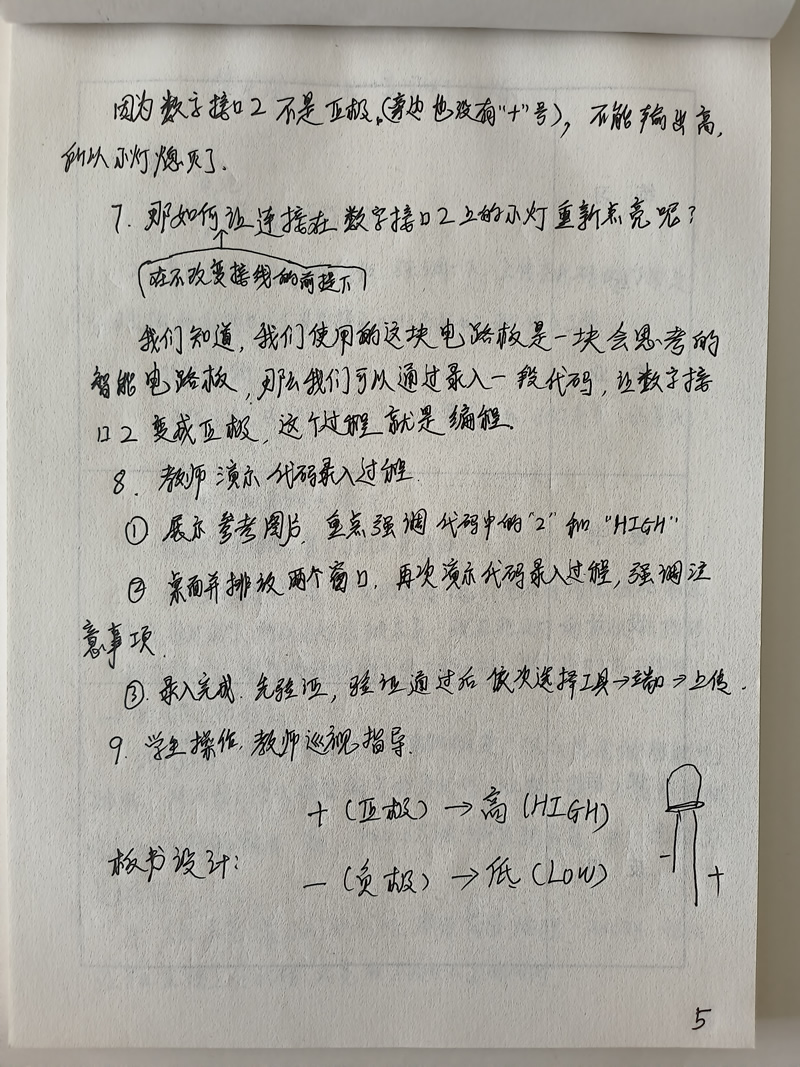 因为数字接口2不是正极,(旁边也没有"+"号),不能输出高,
所以小灯熄灭了.
7. 那如何让连接在数字接口2上的小灯重新点亮呢?
在不改变接线的前提下
我们知道,我们使用的这块电路板是一块会思考的
智能电路板,那么我们可以通过录入一段代码,让数字接
口2变成正极,这个过程就是编程.
8. 教师演示代码录入过程.
① 展示参考图片,重点强调代码中的"2"和"HIGH"
② 桌面并排放两个窗口,再次演示代码录入过程,强调注
意事项.
③. 录入完成.先验证,验证通过后依次选择工具→端口→上传.
9. 学生操作,教师巡视指导.
+(正极)→高(HIGH)
板书设计:
-(负极)→低(LOW)
- +
5